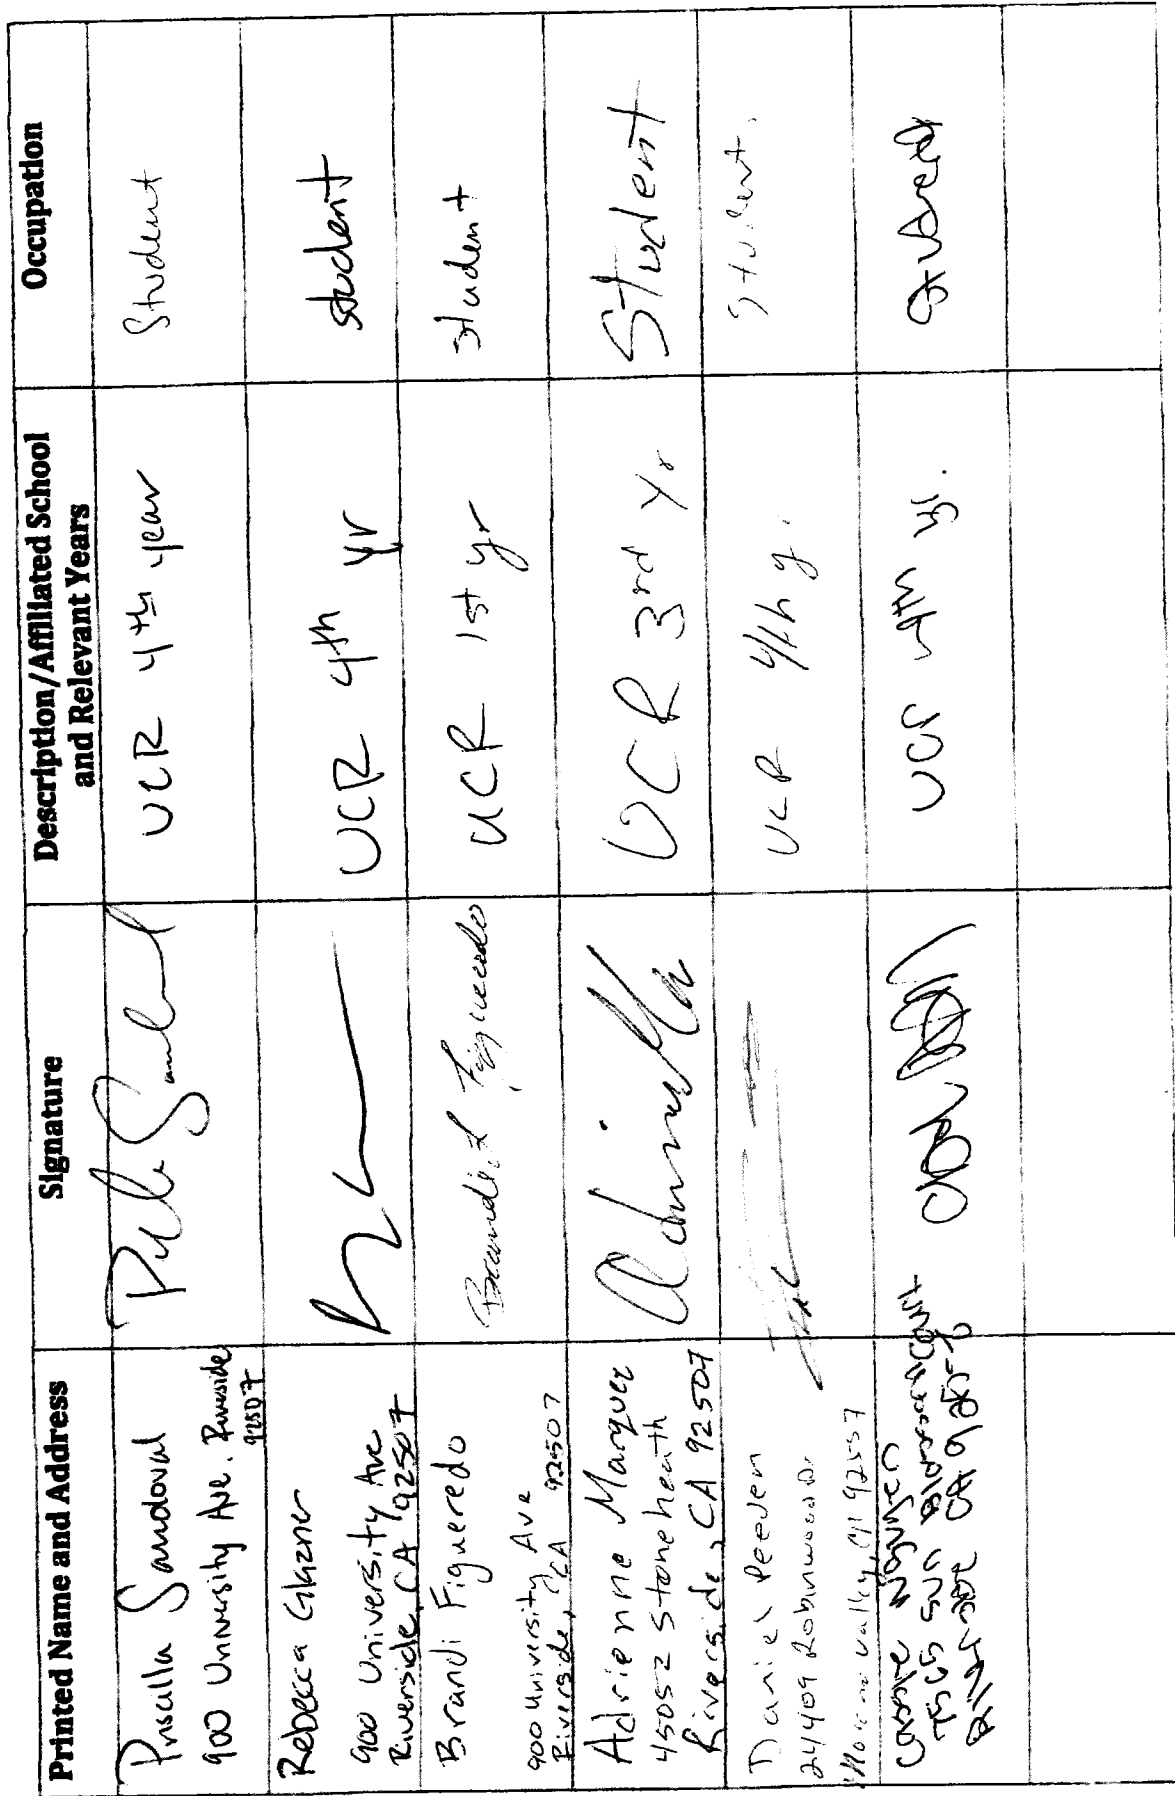 Printed Name and Address
Signature
Description/Affiliated School
and Relevant Years
Occupation
Priscilla Sandoval
900 University Ave. Riverside
92507
UCR 4th year
Student
Rebecca Glazner
900 University Ave
Riverside, CA 92507
UCR 4th yr
student
Brandi Figueredo
900 University Ave
Riverside, CA 92507
Brandi L Figueredo
UCR 1st yr
student
Adrienne Marquez
45052 Stoneheath
Riverside, CA 92507
UCR 3rd Yr
Student
Daniel Peeden
24409 Robinwood Dr
Moreno Valley, CA 92557
UCR 4th y.
Student.
Nguyen
Sun
CA
UCR 4th yr.
student